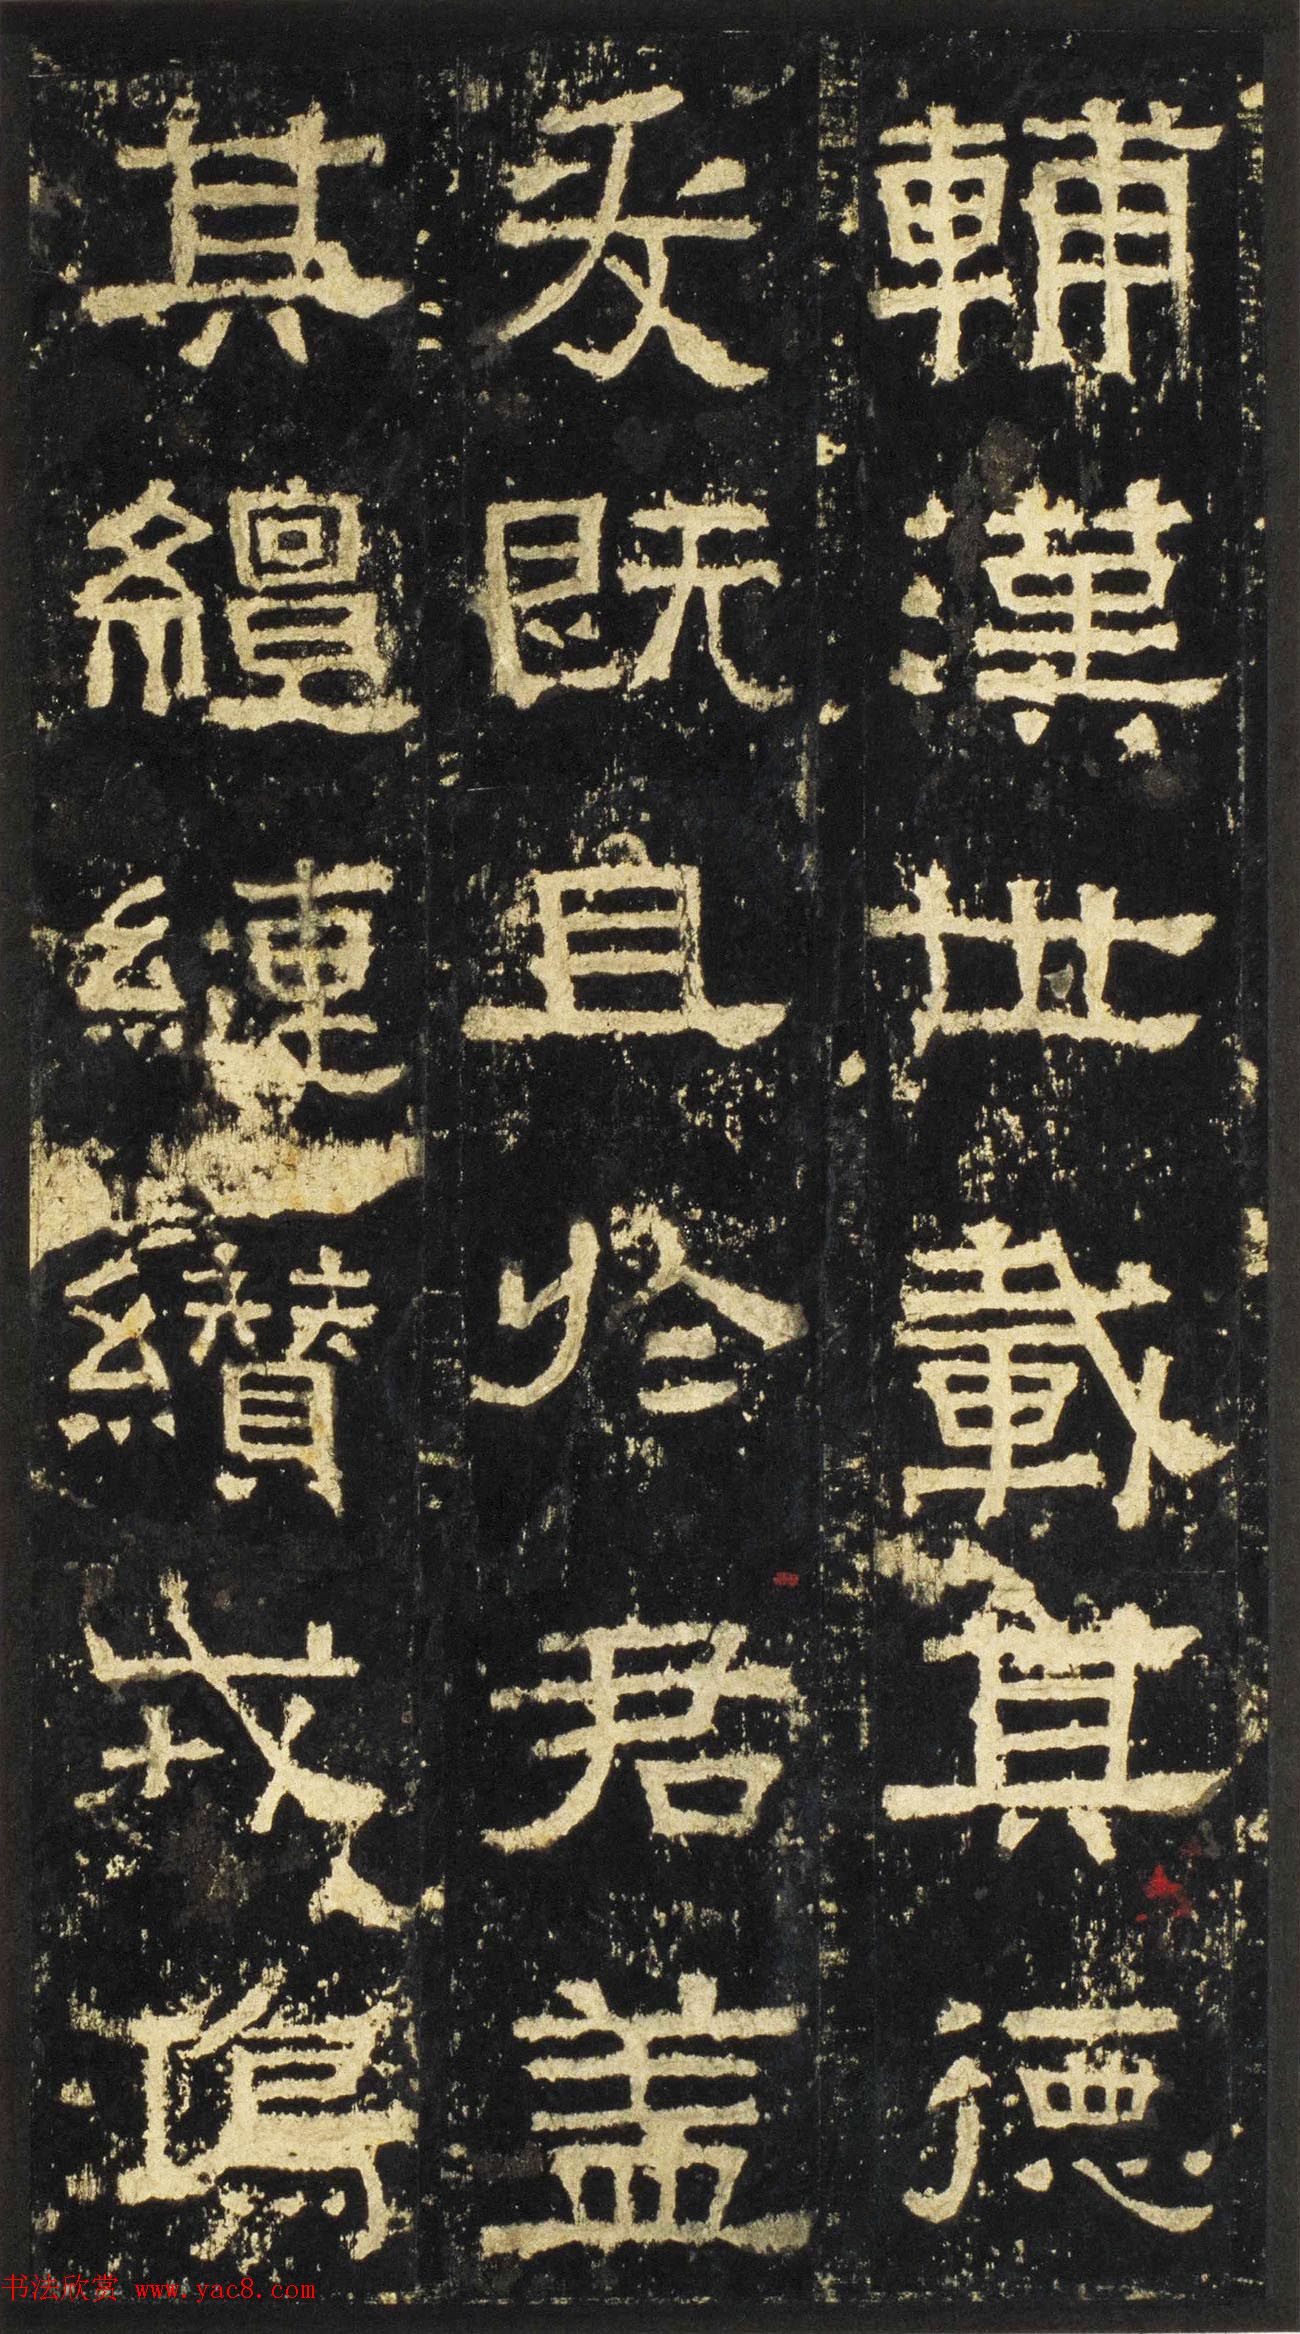 輔漢世載其德
爰既且於君盖
其繵縺纘戎鴻
书法欣赏 www.yac8.com